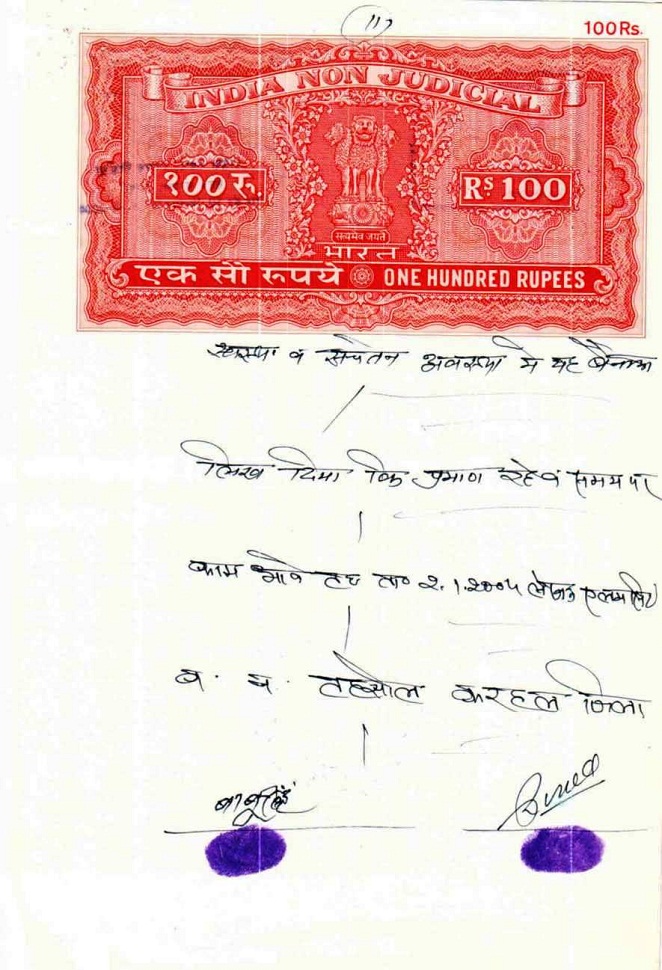 11
100Rs.
INDIA NON JUDICIAL
१00 रु.
Rs 100
सत्यमेव जयते
भारत
एक सौ रुपये ONE HUNDRED RUPEES
व सचेतन अवस्था मे यह बैनामा
लिख दिया कि प्रमाण रहे व समय पर
काम आवे तह ता० 2.1.2004
व. य. तहसील करहल जिला
बाबूसिंह